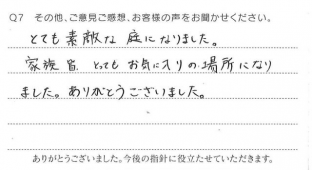 Q7 その他、ご意見ご感想、お客様の声をお聞かせください。
とても素敵な庭になりました。
家族皆 とってもお気に入りの場所になり
ました。ありがとうございました。
ありがとうございました。今後の指針に役立たせていただきます。